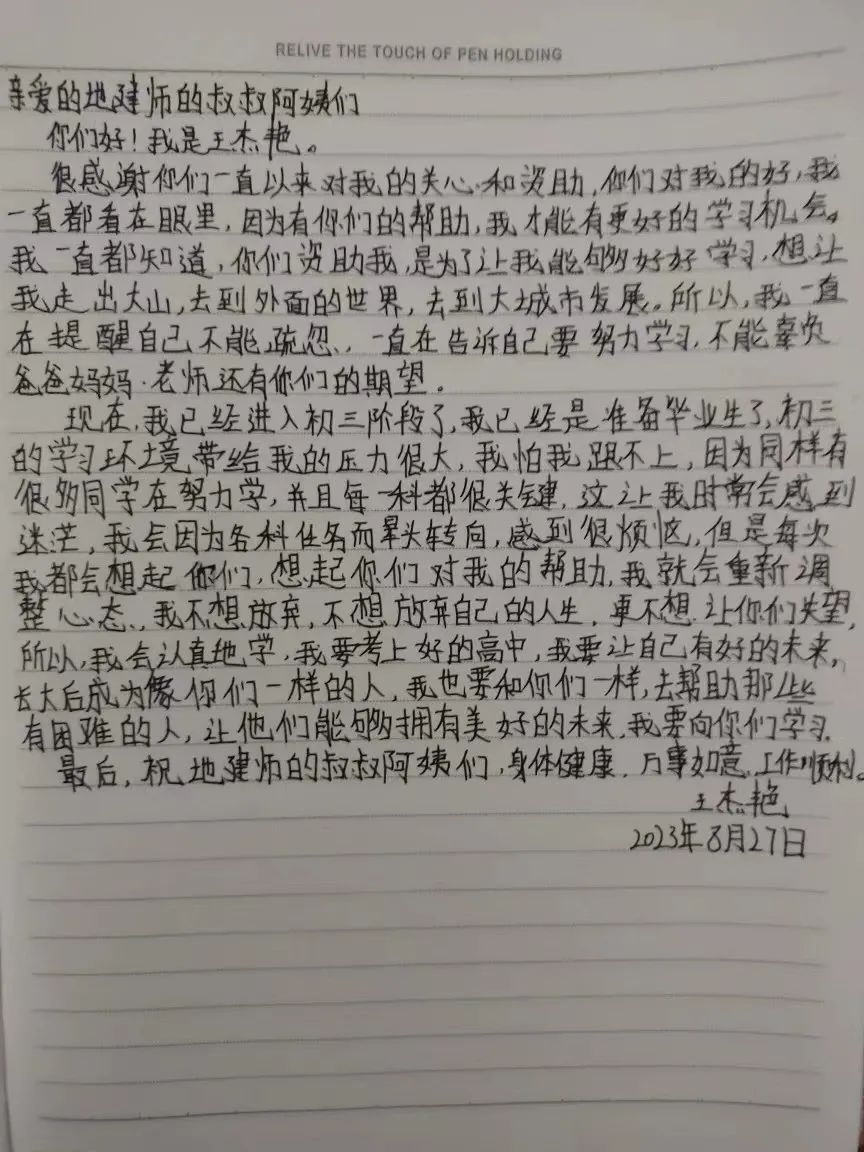 RELIVE THE TOUCH OF PEN HOLDING
亲爱的地建师的叔叔阿姨们
你们好！我是王杰艳。
很感谢你们一直以来对我的关心和资助，你们对我的好，我
一直都看在眼里，因为有你们的帮助，我才能有更好的学习机会。
我一直都知道，你们资助我，是为了让我能够好好学习，想让
我走出大山，去到外面的世界，去到大城市发展。所以，我一直
在提醒自己不能疏忽，一直在告诉自己要努力学习，不能辜负
爸爸妈妈·老师还有你们的期望。
现在，我已经进入初三阶段了，我已经是准备毕业生了，初三
的学习环境带给我的压力很大，我怕我跟不上，因为同样有
很多同学在努力学，并且每一科都很关键，这让我时常会感到
迷茫，我会因为各科任务而晕头转向，感到很烦恼，但是每次
我都会想起你们，想起你们对我的帮助，我就会重新调
整心态，我不想放弃，不想放弃自己的人生，更不想让你们失望，
所以，我会认真地学，我要考上好的高中，我要让自己有好的未来，
长大后成为像你们一样的人，我也要和你们一样，去帮助那些
有困难的人，让他们能够拥有美好的未来，我要向你们学习.
最后，祝地建师的叔叔阿姨们，身体健康，万事如意，工作顺利。
王杰艳
2023年8月27日